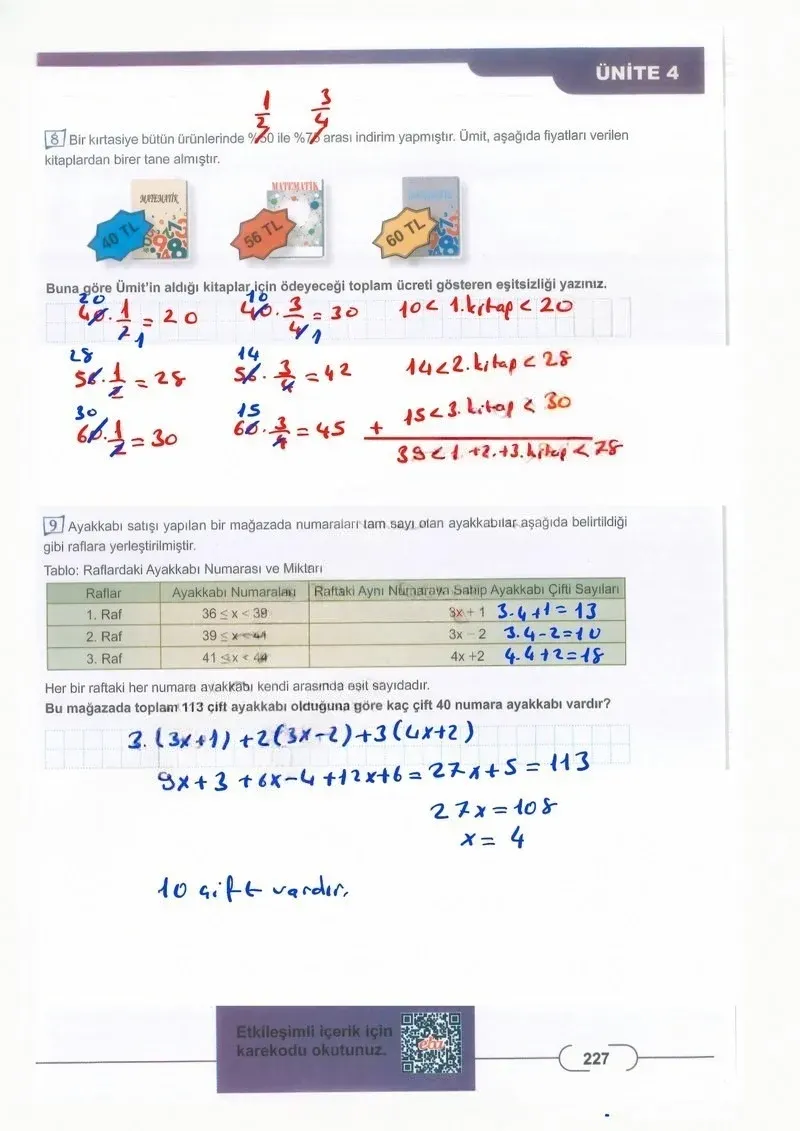 ÜNİTE 4
1/2 3/4
8 Bir kırtasiye bütün ürünlerinde %50 ile %75 arası indirim yapmıştır. Ümit, aşağıda fiyatları verilen
kitaplardan birer tane almıştır.
MATEMATİK MATEMATİK
40 TL 56 TL 60 TL
Buna göre Ümit'in aldığı kitaplar için ödeyeceği toplam ücreti gösteren eşitsizliği yazınız.
20 10
40 · 1/2 1 = 20 40 · 3/4 1 = 30 10 < 1. kitap < 20
28 14
56 · 1/2 = 28 56 · 3/4 = 42 14 < 2. kitap < 28
30 15
60 · 1/2 = 30 60 · 3/4 = 45 + 15 < 3. kitap < 30
39 < 1 + 2. + 3. kitap < 78
9 Ayakkabı satışı yapılan bir mağazada numaraları tam sayı olan ayakkabılar aşağıda belirtildiği
gibi raflara yerleştirilmiştir.
Tablo: Raflardaki Ayakkabı Numarası ve Miktarı
Raflar Ayakkabı Numaraları Raftaki Aynı Numaraya Sahip Ayakkabı Çifti Sayıları
1. Raf 36 ≤ x < 39 3x + 1 3.4+1=13
2. Raf 39 ≤ x < 41 3x - 2 3.4-2=10
3. Raf 41 ≤ x < 44 4x +2 4.4+2=18
Her bir raftaki her numara ayakkabı kendi arasında eşit sayıdadır.
Bu mağazada toplam 113 çift ayakkabı olduğuna göre kaç çift 40 numara ayakkabı vardır?
3.(3x+1) +2(3x-2)+3(4x+2)
9x+3 +6x-4+12x+6=27x+5=113
27x=108
x= 4
10 çift vardır.
Etkileşimli içerik için
karekodu okutunuz.
227